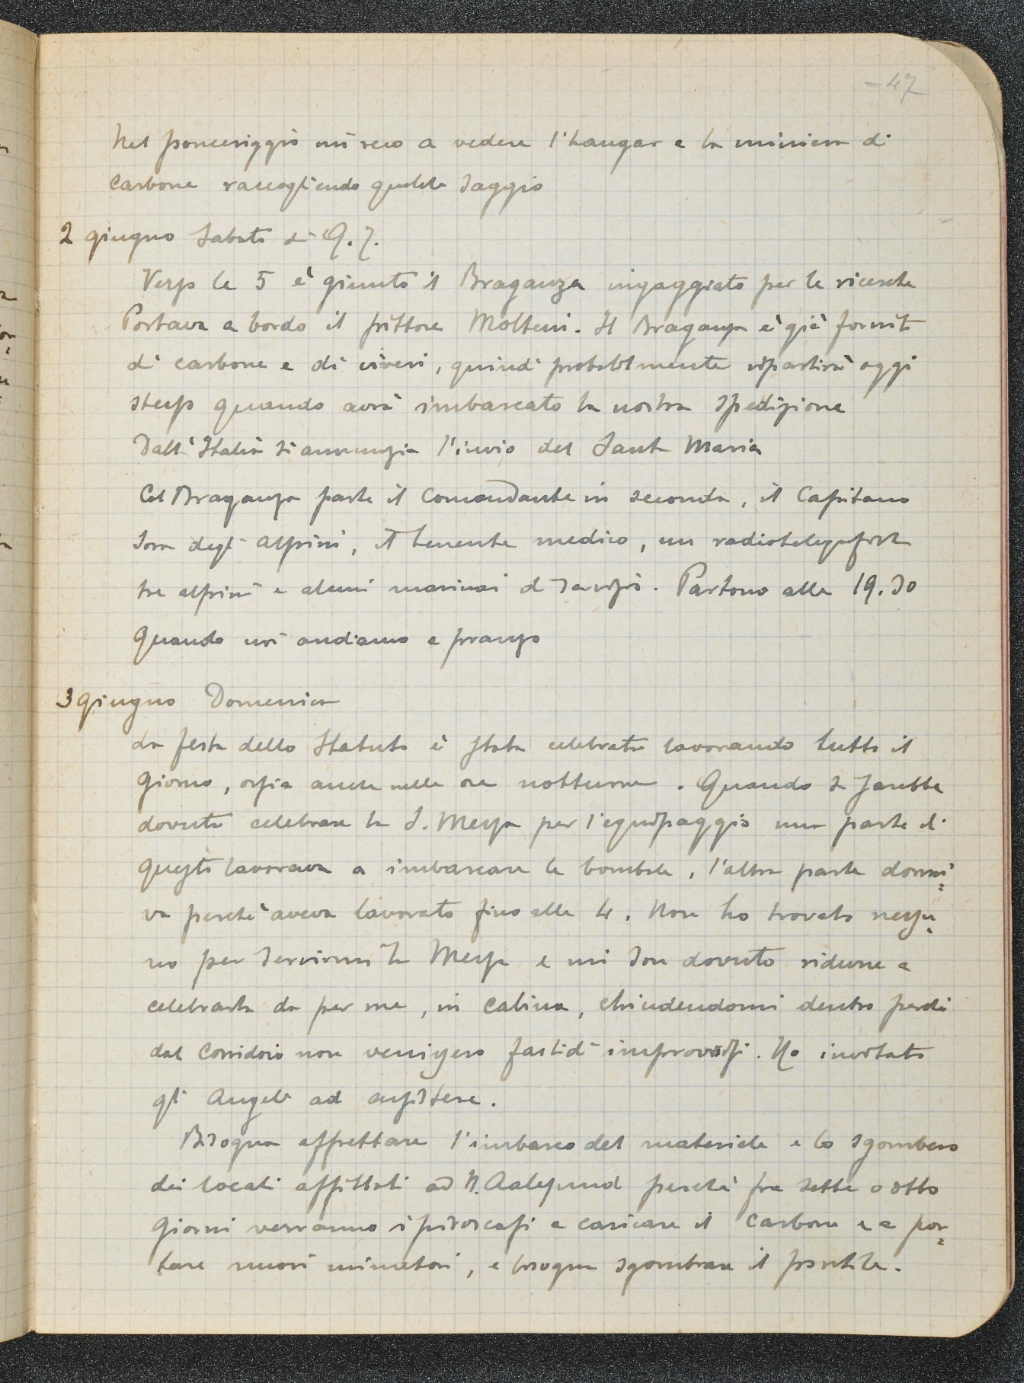 -47
Nel pomeriggio mi reco a vedere l'hangar e la miniera di
carbone raccogliendo qualche saggio
2 giugno Sabato di Q.T.
Verso le 5 è giunto il Braganza ingaggiato per le ricerche
Portava a bordo il pittore Molteni. Il Braganza è già fornito
di carbone e di viveri, quindi probabilmente ripartirà oggi
stesso quando avrà imbarcato la nostra spedizione
Dall'Italia si annunzia l'invio del Santa Maria
Col Braganza parte il Comandante in seconda, il Capitano
Sora degli alpini, il tenente medico, un radiotelegrafista
tre alpini e alcuni marinai di servizio. Partono alle 19.30
quando noi andiamo a pranzo
3 giugno Domenica
La festa dello Statuto è stata celebrata lavorando tutto il
giorno, ossia anche nelle ore notturne. Quando si sarebbe
dovuto celebrare la S. Messa per l'equipaggio una parte di
questi lavorava a imbarcare le bombole, l'altra parte dormi=
va perchè aveva lavorato fino alle 4. Non ho trovato nessu=
no per servirmi la Messa e mi son dovuto ridurre a
celebrarla da per me, in cabina, chiudendomi dentro perchè
dal corridoio non venissero fastidi improvvisi. Ho invitato
gli Angeli ad assistere.
Bisogna affrettare l'imbarco del materiale e lo sgombero
dei locali affittati ad N. Aalesund perchè fra sette o otto
giorni verranno i piroscafi a caricare il carbone e a por=
tare nuovi minatori, e bisogna sgombrare il pontile.